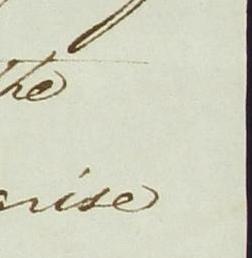 the
arise